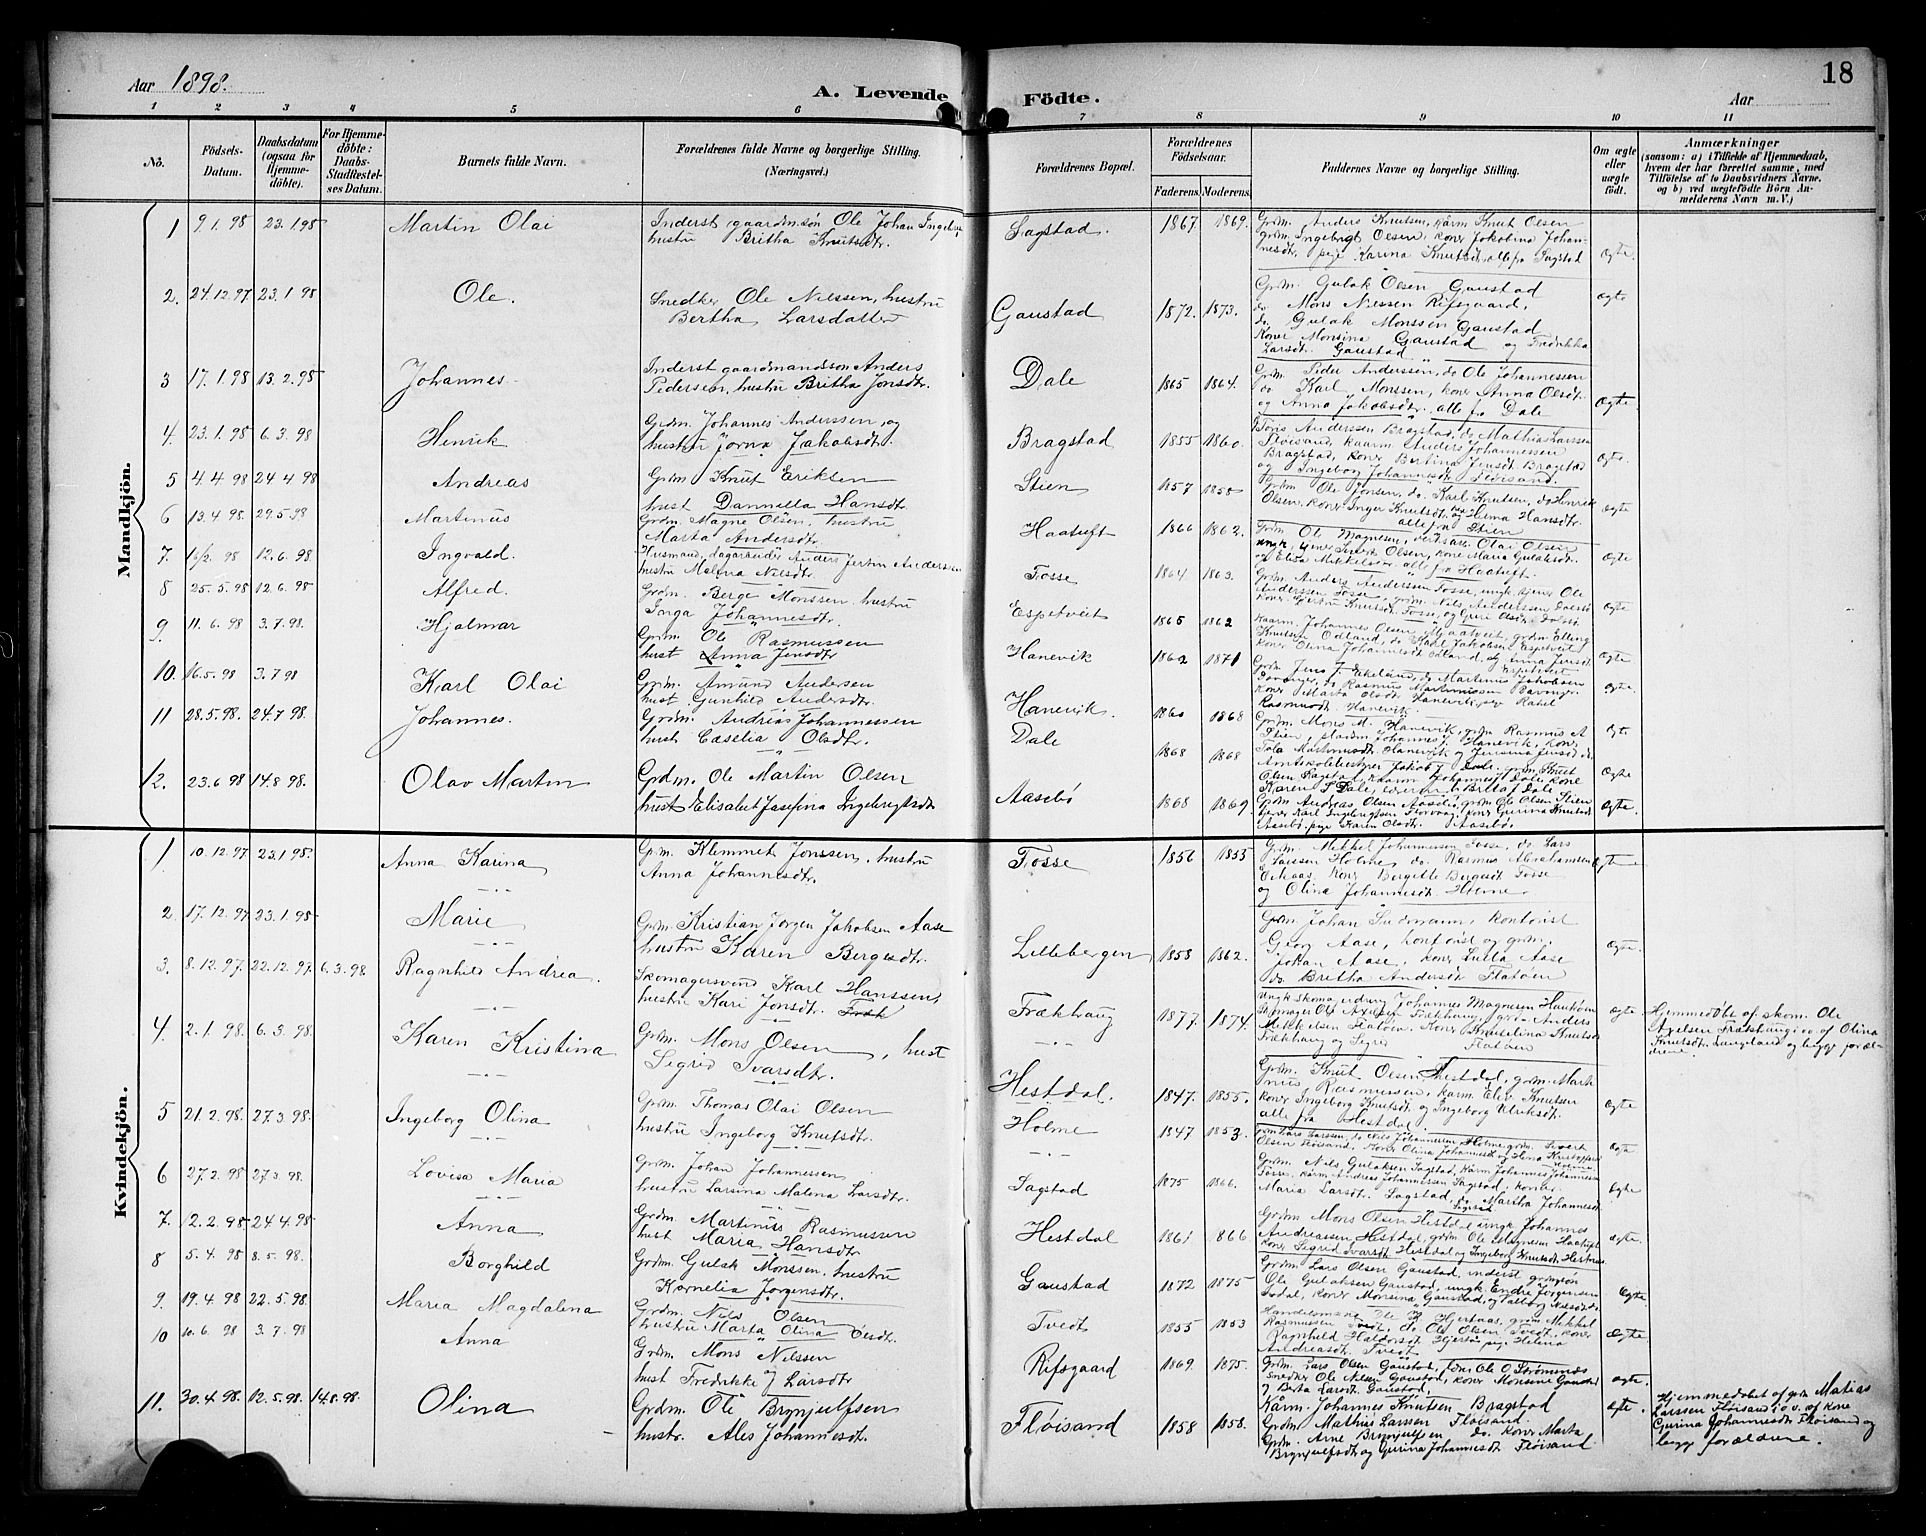 Aar 1898.
A. Levende Födte.
18
Aar
1 2 3 4 5 6 7 8 9 10 11
No.
Födsels-Datum.
Daabsdatum (ogsaa for Hjemmedöbte).
For Hjemmedöbte: Daabs-Stadfæstelses Datum.
Barnets fulde Navn.
Forældrenes fulde Navne og borgerlige Stilling. (Næringsvei.)
Forældrenes Bopæl.
Forældrenes Födselsaar.
Faderens. Moderens.
Faddernes Navne og borgerlige Stilling.
Om ægte eller uægte födt.
Anmærkninger
(saasom: a) i Tilfælde af Hjemmedaab, hvem der har forrettet samme, med Tilföielse af to Daabsvidners Navne. og b) ved uægtefödte Börn Anmelderens Navn m.V.)
Mandkjön.
1 9.1.98 23.1.98 Martin Olai
Inderst gaardmsön Ole Johan Ingebr.
hustru Britha Knutsdtr
Sagstad. 1867. 1869.
Grdm. Anders Knutsen, kaarm Knut Olsen
grdm. Ingebrigt Olsen, kone Jakobina Johan-
nesdtr, pige Karina Knutsdtr alle fra Sagstad
Ægte.
2. 24.12.97 23.1.98 Ole.
Snedker Ole Nilssen, hustru
Bertha Larsdatter
Gaustad 1872. 1873.
Grdm. Gulak Olsen Gaustad
do. Mons Nilssen Rifsgaard,
do. Gulak Monssen Gaustad
Koner Monsina Gaustad og Fredrikka
Larsdt. Gaustad
Ægte
3 17.1.98 13.2.98 Johannes.
Inderst gaardmandssön Anders
Pedersen, hustru Britha Jonsdtr.
Dale 1865 1864.
Grdm. Peder Anderssen, do Ole Johannessen
do Karl Monssen, kone Anna Olsdt.
og Anna Jakobsdtr. alle fra Dale
Ægte
4. 23.1.98 6.3.98 Henrik
Grdm. Johannes Anderssen, og
hustru Jorna Jakobsdtr.
Bragstad 1855 1860.
Anderssen Bragstad, do Mathias Larssen
Flöisand, kaarm Anders Johannessen
Bragstad, koner Bertina Jensdt Bragstad
og Ingeborg Johannesdtr Flöisand.
Ægte.
5 4.4 98 24 4 98 Andreas
Grdm Knut Eriksen
hust Dannilla Hansdtr
Stien 1857 1858
Grdm Ole Jonsen, do. Karl Knutsen, do Henrik
Olsen, kone Inger Knutsdt. og Herma Hansdtr.
alle fra Stien
Ægte
6 13.4 98. 29.5.98 Martinus
Grdm. Magne Olsen, hustru
Marta Andersdtr.
Haatuft 1866 1862.
Grdm Ole Magnesen, Olai Olsen
ungk. Sivert Olsen, kone Maria Gulaksdt.
og Elisa Mikkelsdtr alle fra Haatuft.
Ægte
7. 16/2. 98 12.6.98 Ingvald.
Husmand, dagarbeider Anders Anderssen
hustru Malena Nilsdtr.
Fosse 1864 1863.
Grdm. Anders Anderssen Fosse, ungk. tjener Ole
Anderssen Fosse, grdm. Nils Anderssen
kone Gjertru Knutsdt. Fosse,
Ægte
8 25.5.98 12.6.98 Alfred.
Grdm. Berge Monssen. hustru
Inga Johannesdtr.
Espetveit 1865 1862
Kaarm. Johannes Olsen Mjaatveit, grdm. Elling
Knutsen Odland, do Karl Jakobsen Espetveit
koner Olina Johannesdt Odland, og Anna Jensdt
Espetveit
Ægte
9. 11.6.98 3.7.98. Hjalmar
Grdm. Ole Rasmussen
hust Anna Jensdtr
Hanevik 1862 1871
Grdm. Jens J. Ekeland, do Martinus Jakobsen
do Rasmus Martinussen
kone Marta Olsdt. Hanevik, pige Rakel
Rasmusdt. Hanevik
Ægte
10. 16.5.98 3.7 98 Karl Olai
Grdm. Amund Andersen
hust. Gunhild Andersdtr.
Hanevik. 1860 1868
Grdm. Mons M. Hanevik, grdm Rasmus A
Stien, Johannes J. Hanevik, koner
Martinusdt. Hanevik og Jensina Jensdt do
Ægt
11 28.5.98. 24.7.98. Johannes.
Grdm. Andreas Johannessen
hust Cæselia Olsdtr.
Dale 1868 1868
Amtskolebestyrer Jakob J Dale, grdm. Knut
Olsen Sagstad, kaarm Johannes J Dale kone
Karen S Dale, Britta J Dale
Ægte
12. 23.6 98 14.8 98. Olav Martin
Grdm. Ole Martin Olsen
hust Elisabet Josefina Ingebrigtsdt
Aasebø 1868 1869
Grdm Andreas Olsen Aasebö, grdm Ole Olsen Stien
tjener Karl Ingebrigtsen Florvaag, kone Gurina Knutsdt
Aasebö, pige Karen Olsdt. Aasebö.
Ægte
Kvindekjön.
1 10.12.97 23.1.98. Anna Karina
Grdm. Klemmet Jonssen, hustru
Anna Johannesdtr.
Fosse 1856 1855
Grdm. Mikkel Johannessen Fosse, do. Lars
Larssen Holme, do. Rasmus Abrahamsen
Eikaas, koner Bergitte Bergesdt Fosse
og Olina Johannesdt Holme
Ægte
2. 17.12.97 23.1.98 Marie
Grdm. Kristian Jørgen Jakobsen Aase
hustru Karen Bergesdtr.
Lillebergen 1858 1862.
Grdm. Johan Sudmann, kontorist
Georg Aase, kontorist og grdm.
Johan Aase, koner Lulla Aase
do. Britha Andersdt Flatöen
Ægte
3. 8.12.97. 22.12.97. 6.3.98 Ragnhild Andrea
Skomagersvend Karl Hanssen,
hustru Kari Jonsdtr.
Frækhaug 1877. 1874.
Ungk. Skomagerdreng Johannes Magnesen Haukøen
Skomager Ole Axelsen Frækhaug, grdm Anders
Mikkelsen Flatöen. Koner Knutelina Knutsdt.
Frækhaug og Sigrid Flatöen
Ægte
Hjemmedöbt af skom. Ole
Axelsen Frækhaug i ov. af Olina
Knutsdt. Langeland og begge foræl-
drene.
4. 2.1.98. 6.3.98. Karen Kristina
Grdm. Mons Olsen, hust
Sigrid Ivarsdtr.
Hestdal. 1847. 1855.
Grdm. Knut Olsen Hestdal, grdm. Marti
nus Rasmussen, kaarm. Eliv Knutsen
koner Ingeborg Knutsdt og Ingeborg Ulriksdt.
alle fra Hestdal
Ægte
5 21.2.98. 27.3.98. Ingeborg Olina
Grdm. Thomas Olai Olsen
hustru Ingeborg Knutsdtr.
Holme 1847 1853.
Grdm Lars Larssen, do Nils Johannessen Holme, grdm. Sivert
Olsen Flöisand, koner Olina Johannesdt og
Holme
Ægte
6 27.2.98 27.3.98. Lovisa Maria
Grdm. Johan Johannessen,
hustru Larsina Malena Larsdtr.
Sagstad 1875 1866.
Grdm. Nils Gulaksen Sagstad, kaarm Johannes Johannessen
Fosse, kaarm. Andreas Johannessen Sagstad, koner
Maria Larsdt. Sagstad, do. Martha Johannesdt
Sagstad
Ægte
7. 12.2.98 24.4.98 Anna
Grdm. Martinus Rasmussen
hust Maria Hansdtr
Hestdal 1861 1866
Grdm. Mons Olsen Hestdal, ungk. Johannes
Andreassen Hestdal, grdm. Ole Magnesen Haatuft
koner Sigrid Ivarsdt Hestdal og Ingeborg Knutsdt. Hestnes
Ægte.
8 5.4.98 8.5.98. Borghild
Grdm. Gulak Monssen. hustru
Kornelia Jørgensdtr.
Gaustad 1872 1875
Grdm. Lars Olsen Gaustad, inderst grdmssön
Ole Gulaksen Gaustad, ungk. Endre Jørgensen
Dodal, koner Monsina Gaustad, og Valborg Nilsdt.
Ægte.
9. 19.4.98 22.5.98. Maria Magdalena
Grdm. Nils Olsen
hustru Marta Olina Olsdt.
Tvedt 1855 1853
Handelsmand Ole K Hjertaas, grdm Mikkel
Rasmussen Tvedt, do. Ole Olsen Tvedt, koner
Ragnhild Haldorsdt. Hjertaas, pige Helena
Andreasdt. Tvedt
Ægte
10 10.6.98 3.7.98 Anna
Grdm. Mons Nilssen
hust Fredrikke J Larsdtr
Rifsgaard 1869. 1875.
Grdm. Lars Olsen Gaustad, Ole O. Strømsnes
snedker Ole Nilsen Gaustad, koner Monsine Gaustad
og Berta Larsdt. Gaustad.
Ægte.
11. 30.4.98. 12.5.98. 14.8.98. Olina
Grdm. Ole Brynjulfsen
hustr. Ales Johannesdt.
Flöisand 1858 1858.
Kaarm. Johannes Knutsen Bragstad
Grdm. Mathis Larssen Flöisand.
Grdm. Arne Brynjulfsen do. koner Marta
Brynjulfsdt og Gurina Johannesdt. Flöisand
Ægte.
Hjemmedöbt af grdm Matias
Larssen Flöisand i o. v. af kone
Gurina Johannesdt. Flöisand og
begge forældrene.